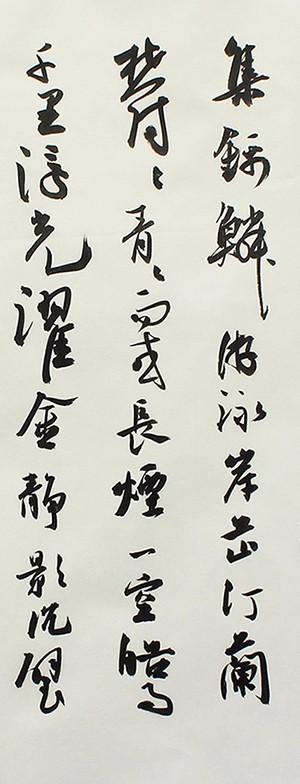 集錦鱗游泳岸芷汀蘭
欝〻青〻而或長煙一空皓月
千里浮光濯金静影沉璧